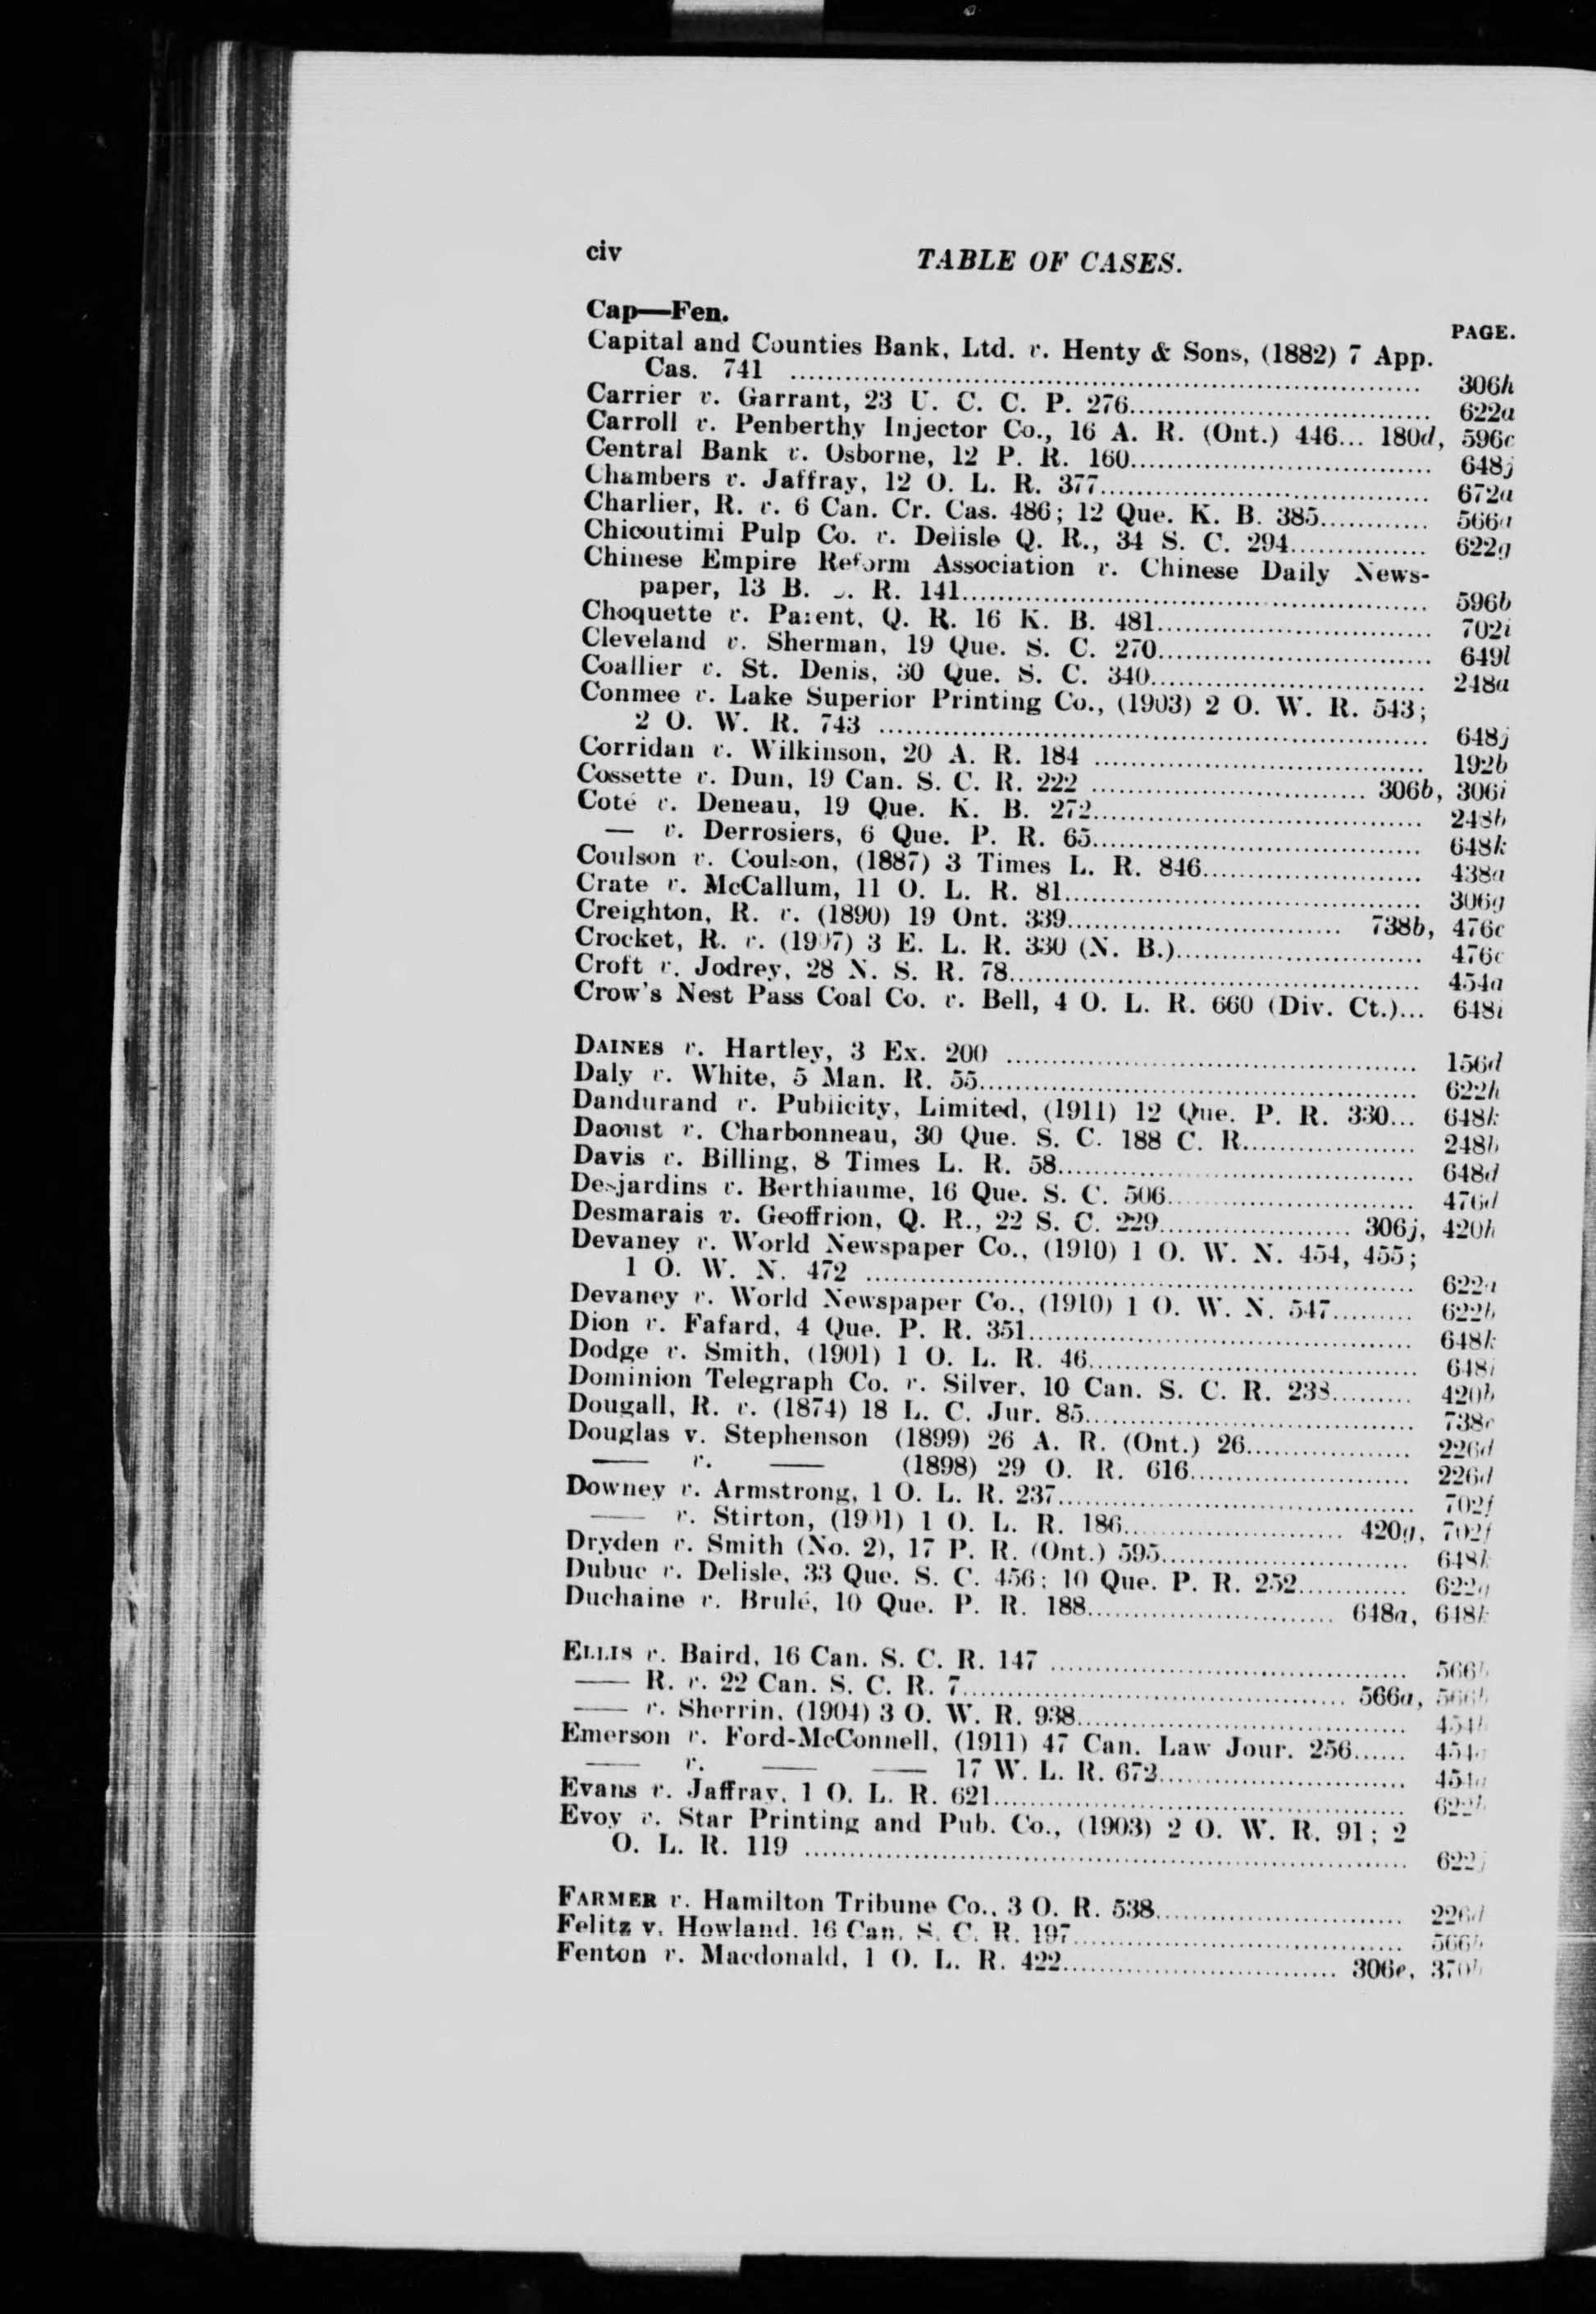 civ TABLE OF CASES.
Cap—Fen.
PAGE.
Capital and Counties Bank, Ltd. v. Henty & Sons, (1882) 7 App.
Cas. 741 ........ 306h
Carrier v. Garrant, 23 U. C. C. P. 276........ 622a
Carroll v. Penberthy Injector Co., 16 A. R. (Ont.) 446... 180d, 596c
Central Bank v. Osborne, 12 P. R. 160........ 648j
Chambers v. Jaffray, 12 O. L. R. 377........ 672a
Charlier, R. v. 6 Can. Cr. Cas. 486; 12 Que. K. B. 385........ 566a
Chicoutimi Pulp Co. v. Delisle Q. R., 34 S. C. 294........ 622g
Chinese Empire Reform Association v. Chinese Daily News-
paper, 13 B. R. 141........ 596b
Choquette v. Parent, Q. R. 16 K. B. 481........ 702i
Cleveland v. Sherman, 19 Que. S. C. 270........ 649l
Coallier v. St. Denis, 30 Que. S. C. 340........ 248a
Conmee v. Lake Superior Printing Co., (1903) 2 O. W. R. 543;
2 O. W. R. 743 ........ 648j
Corridan v. Wilkinson, 20 A. R. 184 ........ 192b
Cossette v. Dun, 19 Can. S. C. R. 222 ........ 306b, 306i
Coté v. Deneau, 19 Que. K. B. 272........ 248b
— v. Derrosiers, 6 Que. P. R. 65........ 648k
Coulson v. Coulson, (1887) 3 Times L. R. 846........ 438a
Crate v. McCallum, 11 O. L. R. 81........ 306g
Creighton, R. v. (1890) 19 Ont. 339........ 738b, 476c
Crocket, R. v. (1907) 3 E. L. R. 330 (N. B.)........ 476c
Croft v. Jodrey, 28 N. S. R. 78........ 454a
Crow's Nest Pass Coal Co. v. Bell, 4 O. L. R. 660 (Div. Ct.)... 648i
DAINES v. Hartley, 3 Ex. 200 ........ 156d
Daly v. White, 5 Man. R. 55........ 622h
Dandurand v. Publicity, Limited, (1911) 12 Que. P. R. 330... 648k
Daoust v. Charbonneau, 30 Que. S. C. 188 C. R........ 248b
Davis v. Billing, 8 Times L. R. 58........ 648d
Desjardins v. Berthiaume, 16 Que. S. C. 506........ 476d
Desmarais v. Geoffrion, Q. R., 22 S. C. 229........ 306j, 420h
Devaney v. World Newspaper Co., (1910) 1 O. W. N. 454, 455;
1 O. W. N. 472 ........ 622a
Devaney v. World Newspaper Co., (1910) 1 O. W. N. 547........ 622b
Dion v. Fafard, 4 Que. P. R. 351........ 648k
Dodge v. Smith, (1901) 1 O. L. R. 46........ 648i
Dominion Telegraph Co. v. Silver, 10 Can. S. C. R. 238........ 420b
Dougall, R. v. (1874) 18 L. C. Jur. 85........ 738c
Douglas v. Stephenson (1899) 26 A. R. (Ont.) 26........ 226d
—— v. —— (1898) 29 O. R. 616........ 226d
Downey v. Armstrong, 1 O. L. R. 237........ 702f
—— v. Stirton, (1901) 1 O. L. R. 186........ 420g, 702f
Dryden v. Smith (No. 2), 17 P. R. (Ont.) 595........ 648k
Dubuc v. Delisle, 33 Que. S. C. 456; 10 Que. P. R. 252........ 622g
Duchaine v. Brulé, 10 Que. P. R. 188........ 648a, 648k
ELLIS v. Baird, 16 Can. S. C. R. 147 ........ 566b
—— R. v. 22 Can. S. C. R. 7........ 566a, 566b
—— v. Sherrin, (1904) 3 O. W. R. 938........
Emerson v. Ford-McConnell, (1911) 47 Can. Law Jour. 256...... 454a
—— v. —— —— 17 W. L. R. 672........ 454a
Evans v. Jaffray, 1 O. L. R. 621........
Evoy v. Star Printing and Pub. Co., (1903) 2 O. W. R. 91; 2
O. L. R. 119 ........ 622j
FARMER v. Hamilton Tribune Co., 3 O. R. 538........ 226d
Felitz v. Howland, 16 Can. S. C. R. 197........ 566b
Fenton v. Macdonald, 1 O. L. R. 422........ 306e,